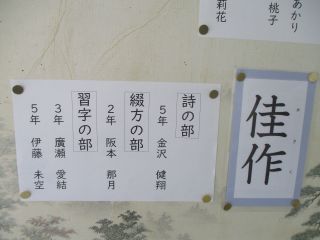 あかり
桃子
莉花
佳作
詩の部
5年 金沢 健翔
綴方の部
2年 阪本 那月
習字の部
3年 廣瀬 愛結
5年 伊藤 未空